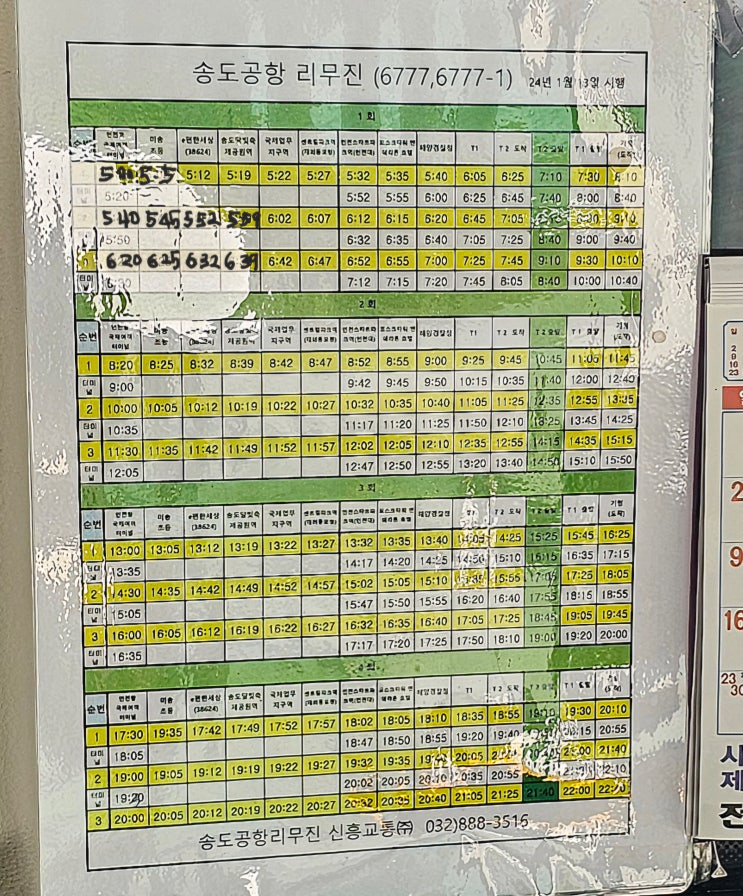 송도공항 리무진 (6777,6777-1) 24년 1월 13일 시행
1 회
순번 인천항 국제여객 터미널 미송 초등 e편한세상 (38624) 송도달빛축제공원역 국제업무 지구역 센트럴파크역 (재외동포청) 인천스타트파크역(인천대) 포스코타워 앤 쉐라톤 호텔 해양경찰청 T1 T2 도착 T2 출발 T1 출발 기점 (도착)
5:12 5:19 5:22 5:27 5:32 5:35 5:40 6:05 6:25 7:10 7:30
5:20 5:52 5:55 6:00 6:25 6:45 7:40 8:00 8:40
540 545 552 559 6:02 6:07 6:12 6:15 6:20 6:45 7:05
5:50 6:32 6:35 6:40 7:05 7:25 8:40 9:00 9:40
620 625 632 639 6:42 6:47 6:52 6:55 7:00 7:25 7:45 9:10 9:30 10:10
터미널 7:12 7:15 7:20 7:45 8:05 8:40 10:00 10:40
2 회
순번 인천항 국제여객 터미널 미송 초등 (38624) 제공원역 국제업무 지구역 센트럴파크역 (재외동포청) 인천스타트파크역(인천대) 포스코타워 앤 쉐라톤 호텔 해양경찰청 T1 T2 도착 T2 출발 T1 출발 기점 (도착)
1 8:20 8:25 8:32 8:39 8:42 8:47 8:52 8:55 9:00 9:25 9:45 10:45 11:05 11:45
터미널 9:00 9:42 9:45 9:50 10:15 10:35 11:40 12:00 12:40
2 10:00 10:05 10:12 10:19 10:22 10:27 10:32 10:35 10:40 11:05 11:25 12:35 12:55 13:35
터미널 10:35 11:17 11:20 11:25 11:50 12:10 13:25 13:45 14:25
3 11:30 11:35 11:42 11:49 11:52 11:57 12:02 12:05 12:10 12:35 12:55 14:15 14:35 15:15
터미널 12:05 12:47 12:50 12:55 13:20 13:40 14:50 15:10 15:50
3 회
순번 인천항 국제여객 터미널 미송 초등 e편한세상 (38624) 송도달빛축제공원역 국제업무 지구역 센트럴파크역 (재외동포청) 인천스타트파크역(인천대) 포스코타워 앤 쉐라톤 호텔 해양경찰청 T1 T2 도착 T2 출발 T1 출발 기점 (도착)
1 13:00 13:05 13:12 13:19 13:22 13:27 13:32 13:35 13:40 14:05 14:25 15:25 15:45 16:25
터미널 13:35 14:17 14:20 14:25 14:50 15:10 16:15 16:35 17:15
2 14:30 14:35 14:42 14:49 14:52 14:57 15:02 15:05 15:10 15:35 15:55 17:05 17:25 18:05
터미널 15:05 15:47 15:50 15:55 16:20 16:40 17:55 18:15 18:55
3 16:00 16:05 16:12 16:19 16:22 16:27 16:32 16:35 16:40 17:05 17:25 18:45 19:05 19:45
터미널 16:35 17:17 17:20 17:25 17:50 18:10 19:00 19:20 20:00
회
순번 인천항 국제여객 터미널 미송 초등 e편한세상 (38624) 송도달빛축제공원역 국제업무 지구역 센트럴파크역 (재외동포청) 인천스타트파크역(인천대) 포스코타워 앤 쉐라톤 호텔 해양경찰청 T1 T2 도착 T2 출발 T1 출발 기점 (도착)
1 17:30 19:35 17:42 17:49 17:52 17:57 18:02 18:05 18:10 18:35 18:55 19:10 19:30 20:10
터미널 18:05 18:47 18:50 18:55 19:20 19:40 20:15 20:55
2 19:00 19:05 19:12 19:19 19:22 19:27 19:32 19:35 20:05 21:00 21:40
터미널 19:20 20:02 20:05 20:10 20:35 20:55 22:10
3 20:00 20:05 20:12 20:19 20:22 20:27 20:32 20:35 20:40 21:05 21:25 21:40 22:00
송도공항리무진 신흥교통㈜ 032)888-3516
일
2
9
16
23
2
9
16
23
30